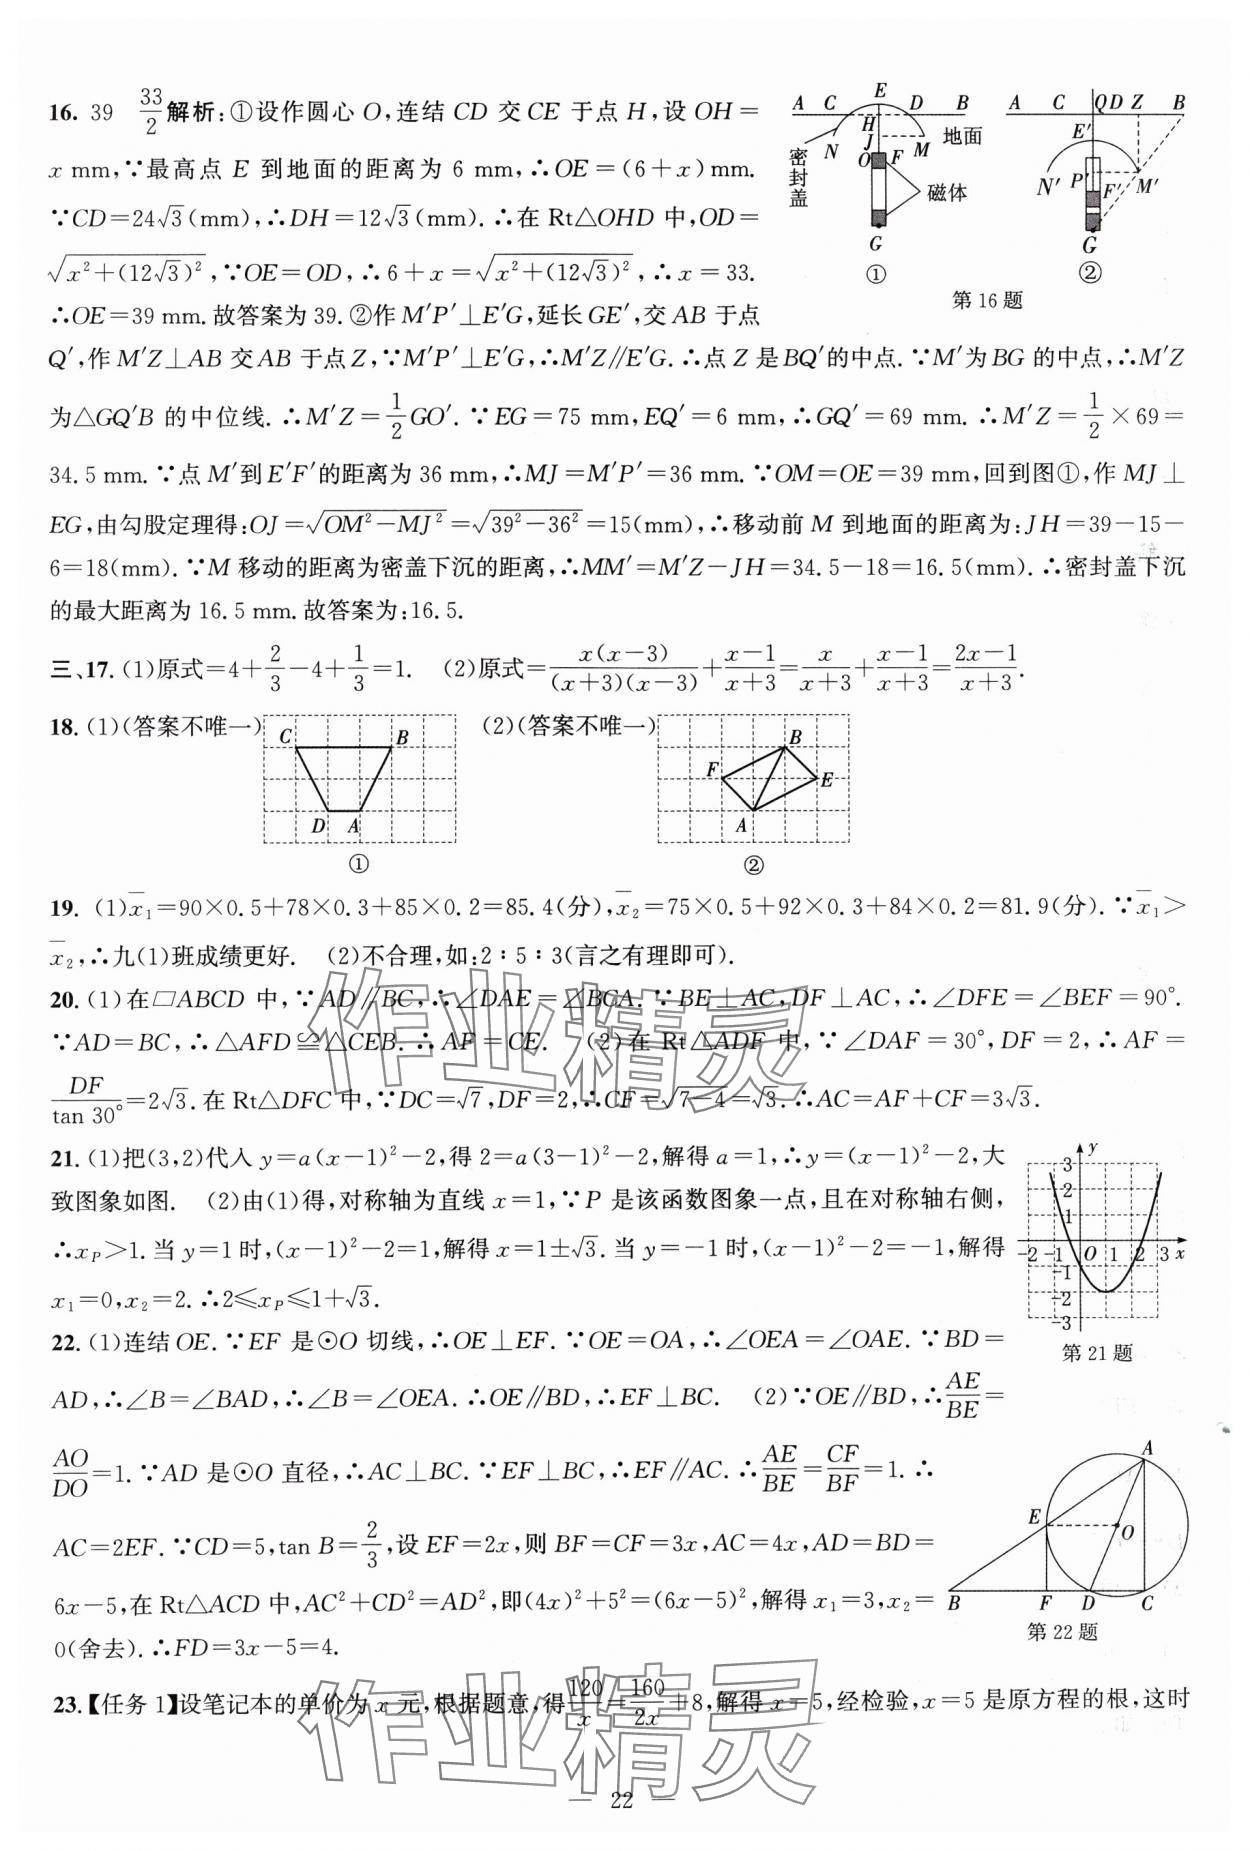 16. 39 33/2 解析:①设作圆心O,连结CD交CE于点H,设OH=
x mm,∵最高点E到地面的距离为6 mm,∴OE=(6+x)mm.
∵CD=24√3(mm),∴DH=12√3(mm).∴在Rt△OHD中,OD=
√(x²+(12√3)²),∵OE=OD,∴6+x=√(x²+(12√3)²),∴x=33.
∴OE=39 mm.故答案为39.②作M′P′⊥E′G,延长GE′,交AB于点
A C E D B
H
J 地面
N O F M
密封盖
磁体
G
①
A C QD Z B
E′
N′ P′ F′ M′
G
②
第16题
Q′,作M′Z⊥AB交AB于点Z,∵M′P′⊥E′G,∴M′Z∥E′G.∴点Z是BQ′的中点.∵M′为BG的中点,∴M′Z
为△GQ′B的中位线.∴M′Z=1/2GO′.∵EG=75 mm,EQ′=6 mm,∴GQ′=69 mm.∴M′Z=1/2×69=
34.5 mm.∵点M′到E′F′的距离为36 mm,∴MJ=M′P′=36 mm.∵OM=OE=39 mm,回到图①,作MJ⊥
EG,由勾股定理得:OJ=√(OM²-MJ²)=√(39²-36²)=15(mm),∴移动前M到地面的距离为:JH=39-15-
6=18(mm).∵M移动的距离为密盖下沉的距离,∴MM′=M′Z-JH=34.5-18=16.5(mm).∴密封盖下沉
的最大距离为16.5 mm.故答案为:16.5.
三、17.(1)原式=4+2/3-4+1/3=1. (2)原式=x(x-3)/((x+3)(x-3))+(x-1)/(x+3)=x/(x+3)+(x-1)/(x+3)=(2x-1)/(x+3).
18.(1)(答案不唯一) (2)(答案不唯一)
C B
D A
①
B
F E
A
②
19. (1)x̄₁=90×0.5+78×0.3+85×0.2=85.4(分),x̄₂=75×0.5+92×0.3+84×0.2=81.9(分).∵x̄₁>
x̄₂,∴九(1)班成绩更好. (2)不合理,如:2∶5∶3(言之有理即可).
20.(1)在▱ABCD中,∵AD∥BC,∴∠DAE=∠BCA.∵BE⊥AC,DF⊥AC,∴∠DFE=∠BEF=90°.
∵AD=BC,∴△AFD≌△CEB.∴AF=CE. (2)在Rt△ADF中,∵∠DAF=30°,DF=2,∴AF=
DF/tan 30°=2√3.在Rt△DFC中,∵DC=√7,DF=2,∴CF=√(7-4)=√3.∴AC=AF+CF=3√3.
21.(1)把(3,2)代入y=a(x-1)²-2,得2=a(3-1)²-2,解得a=1,∴y=(x-1)²-2,大
致图象如图. (2)由(1)得,对称轴为直线x=1,∵P是该函数图象一点,且在对称轴右侧,
∴xP>1.当y=1时,(x-1)²-2=1,解得x=1±√3.当y=-1时,(x-1)²-2=-1,解得
x₁=0,x₂=2.∴2≤xP≤1+√3.
y
3
2
1
-2 -1 O 1 2 3 x
-1
-2
-3
第21题
22.(1)连结OE.∵EF是⊙O切线,∴OE⊥EF.∵OE=OA,∴∠OEA=∠OAE.∵BD=
AD,∴∠B=∠BAD,∴∠B=∠OEA.∴OE∥BD,∴EF⊥BC. (2)∵OE∥BD,∴AE/BE=
AO/DO=1.∵AD是⊙O直径,∴AC⊥BC.∵EF⊥BC,∴EF∥AC.∴AE/BE=CF/BF=1.∴
AC=2EF.∵CD=5,tan B=2/3,设EF=2x,则BF=CF=3x,AC=4x,AD=BD=
6x-5,在Rt△ACD中,AC²+CD²=AD²,即(4x)²+5²=(6x-5)²,解得x₁=3,x₂=
0(舍去).∴FD=3x-5=4.
A
E O
B F D C
第22题
23.【任务1】设笔记本的单价为x元,根据题意,得120/x=160/2x+8,解得x=5,经检验,x=5是原方程的根,这时
作业精灵
作业精灵
— 22 —